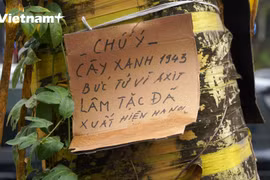 Vietnam+
CHÚ Ý -
CÂY XANH 1943
BỨC TỬ VÌ AXIT
LÂM TẶC ĐÃ
XUẤT HIỆN HANOI